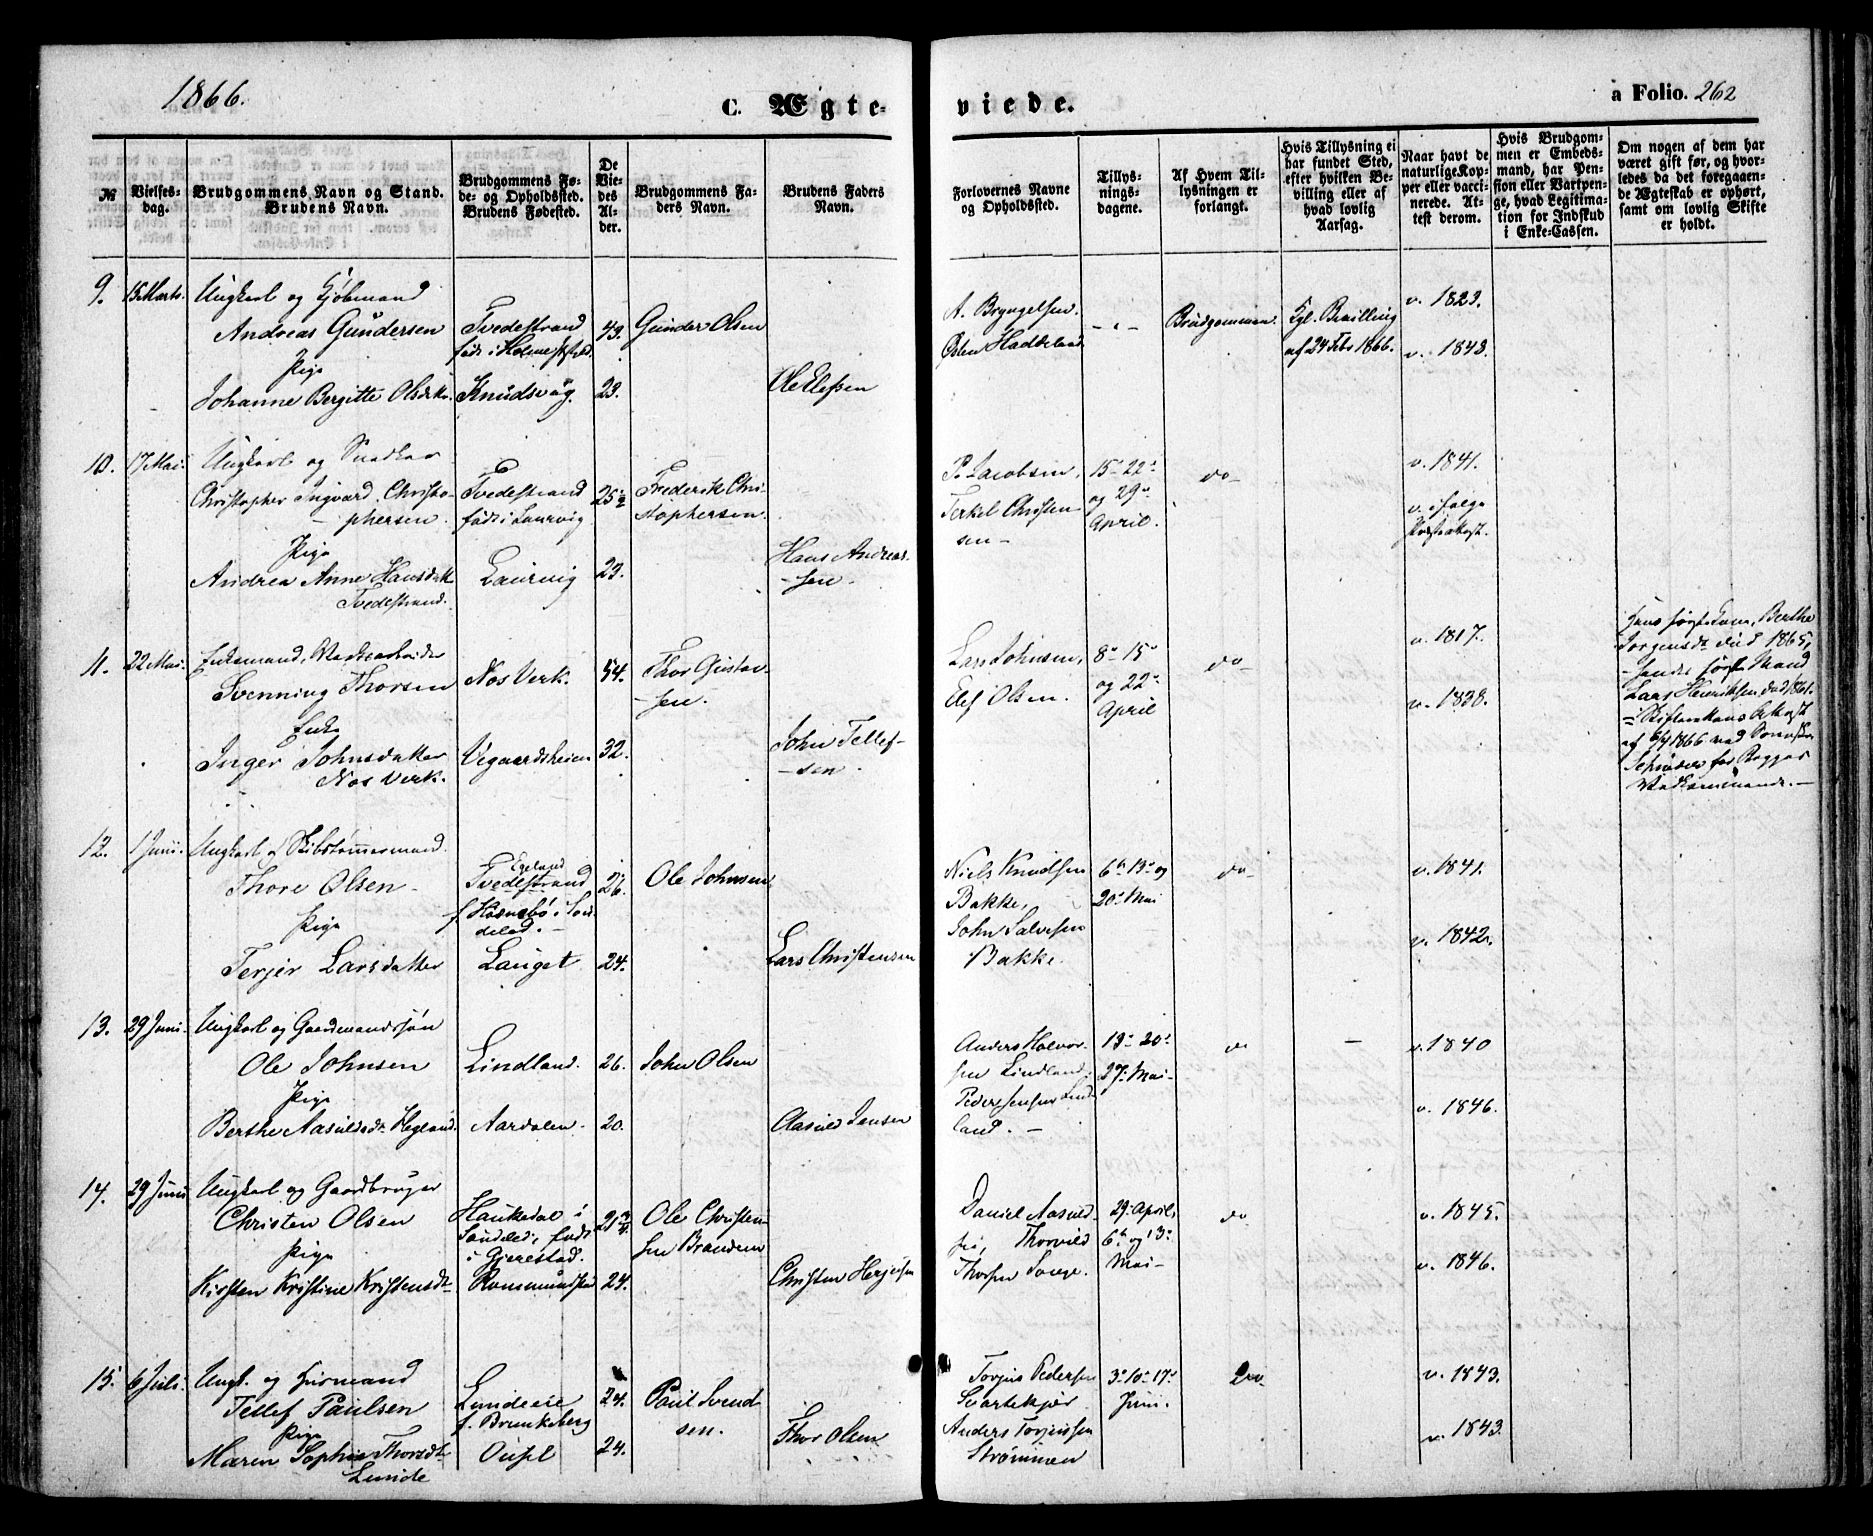 1866.
C. Ægte-
viede.
a Folio. 262
№
Vielses-
dag.
Brudgommens Navn og Stand.
Brudens Navn.
Brudgommens Fø-
de- og Opholdssted.
Brudens Fødested.
De
Vie-
des
Al-
der.
Brudgommens Fa-
ders Navn.
Brudens Faders
Navn.
Forlovernes Navne
og Opholdssted.
Tillys-
nings-
dagene.
Af Hvem Til-
lysningen er
forlangt.
Hvis Tillysning ei
har fundet Sted,
efter hvilken Be-
villing eller af
hvad lovlig
Aarsag.
Naar havt de
naturlige Kop-
per eller vacci-
nerede. At-
test derom.
Hvis Brudgom-
men er Embeds-
mand, har Pen-
sion eller Vartpen-
ge, hvad Legitima-
tion for Indskud
i Enke-Cassen.
Om nogen af dem har
været gift før, og hvor-
ledes da det foregaaen-
de Ægteskab er ophørt,
samt om lovlig Skifte
er holdt.
9. 15 Marts. Ungkarl og Kjøbmand
Andreas Gundersen
Pige
Johanne Bergitte Olsdatter.
Tvedestrand
født i Holmestrand.
Knudsvåg.
43.
23.
Gunder Olsen
Ole Elefsen
A. Bryngelsen.
Osten Hadeland
- " -
Brudgommen.
Kgl. Bevilling
af 24 Febr 1866.
v. 1823.
v. 1843.
10. 17 Mai. Ungkarl og Snedker
Christopher Ingvard Christo-
phersen.
Pige
Andrea Anne Hansdatt
Tvedestrand.
Tvedestrand
født i Laurvig
Laurvig
25½
23.
Frederik Chri-
stophersen.
Hans Andreas-
sen.
P. Jacobsen,
Terkel Christen-
sen -
15de 22de
og 29de
April.
do
v. 1841.
v. ifølge
11. 22 Mai. Enkemand, Verksarbeider
Svenning Thorsen
Enke
Inger Johnsdatter
Nos Verk.
Nos Verk.
Vegaardsheien
54.
32.
Thor Gustav-
sen.
John Tellef-
sen.
Lars Johnsen,
Elef Olsen.
8de 15de
og 22de
April
do
v. 1817.
v. 1838.
Hans første Kone, Berthe
Jorgensdt død 1865,
hendes første Mand
Lars Henriksen, død 1861.
af 6/4 1866
12. 1 Juni. Ungkarl og Skibstømmermand.
Thore Olsen -
Pige
Terjer Larsdatter
Egeland
Tvedestrand
f. Hosnebø i Søn-
deled. -
Langet
26.
24.
Ole Johnsen
Lars Christensen
Niels Knudsen
Bakke,
John Salvesen
Bakke.
6te 13de og
20de Mai
do
v. 1841.
v. 1842.
13. 29 Juni. Ungkarl og Gaardmandssøn
Ole Johnsen
Pige
Berthe Aasuldsdt. Hegland.
Lindland.
Aardalen.
26.
20.
John Olsen
Aasuld Jensen
Anders Halvor-
sen Lindland.
Peder Jensen Lind-
land. -
13de 20de
27de Mai -
do
-
v. 1840
v. 1846.
14. 29 Juni Ungkarl og Gaardbruger
Christen Olsen
Pige
Kirsten Kristine Kristensdt.
Haukedal i
Søndeled, født
i Gjerestad.
Rommundstad
21¾
24.
Ole Christen-
sen Brandem
Christen Herjusen
Daniel Aasuld-
sen, Thorvild
Thorsen Songe.
29de April,
6te og 13de
Mai -
do
v. 1845.
v. 1846.
15. 6 Juli. Ungk. og Huusmand
Tellef Paulsen
Pige
Maren Sophie Thorsdtr
Lunde
Lundeeie
f. Brunkeberg
Ousel
24.
24.
Paul Svend-
sen.
Thor Olsen
Torjus Pedersen
Svartekjær
Anders Torjussen
Strømmen
3de 10de 17de
Juni.
do
v. 1843.
v. 1843